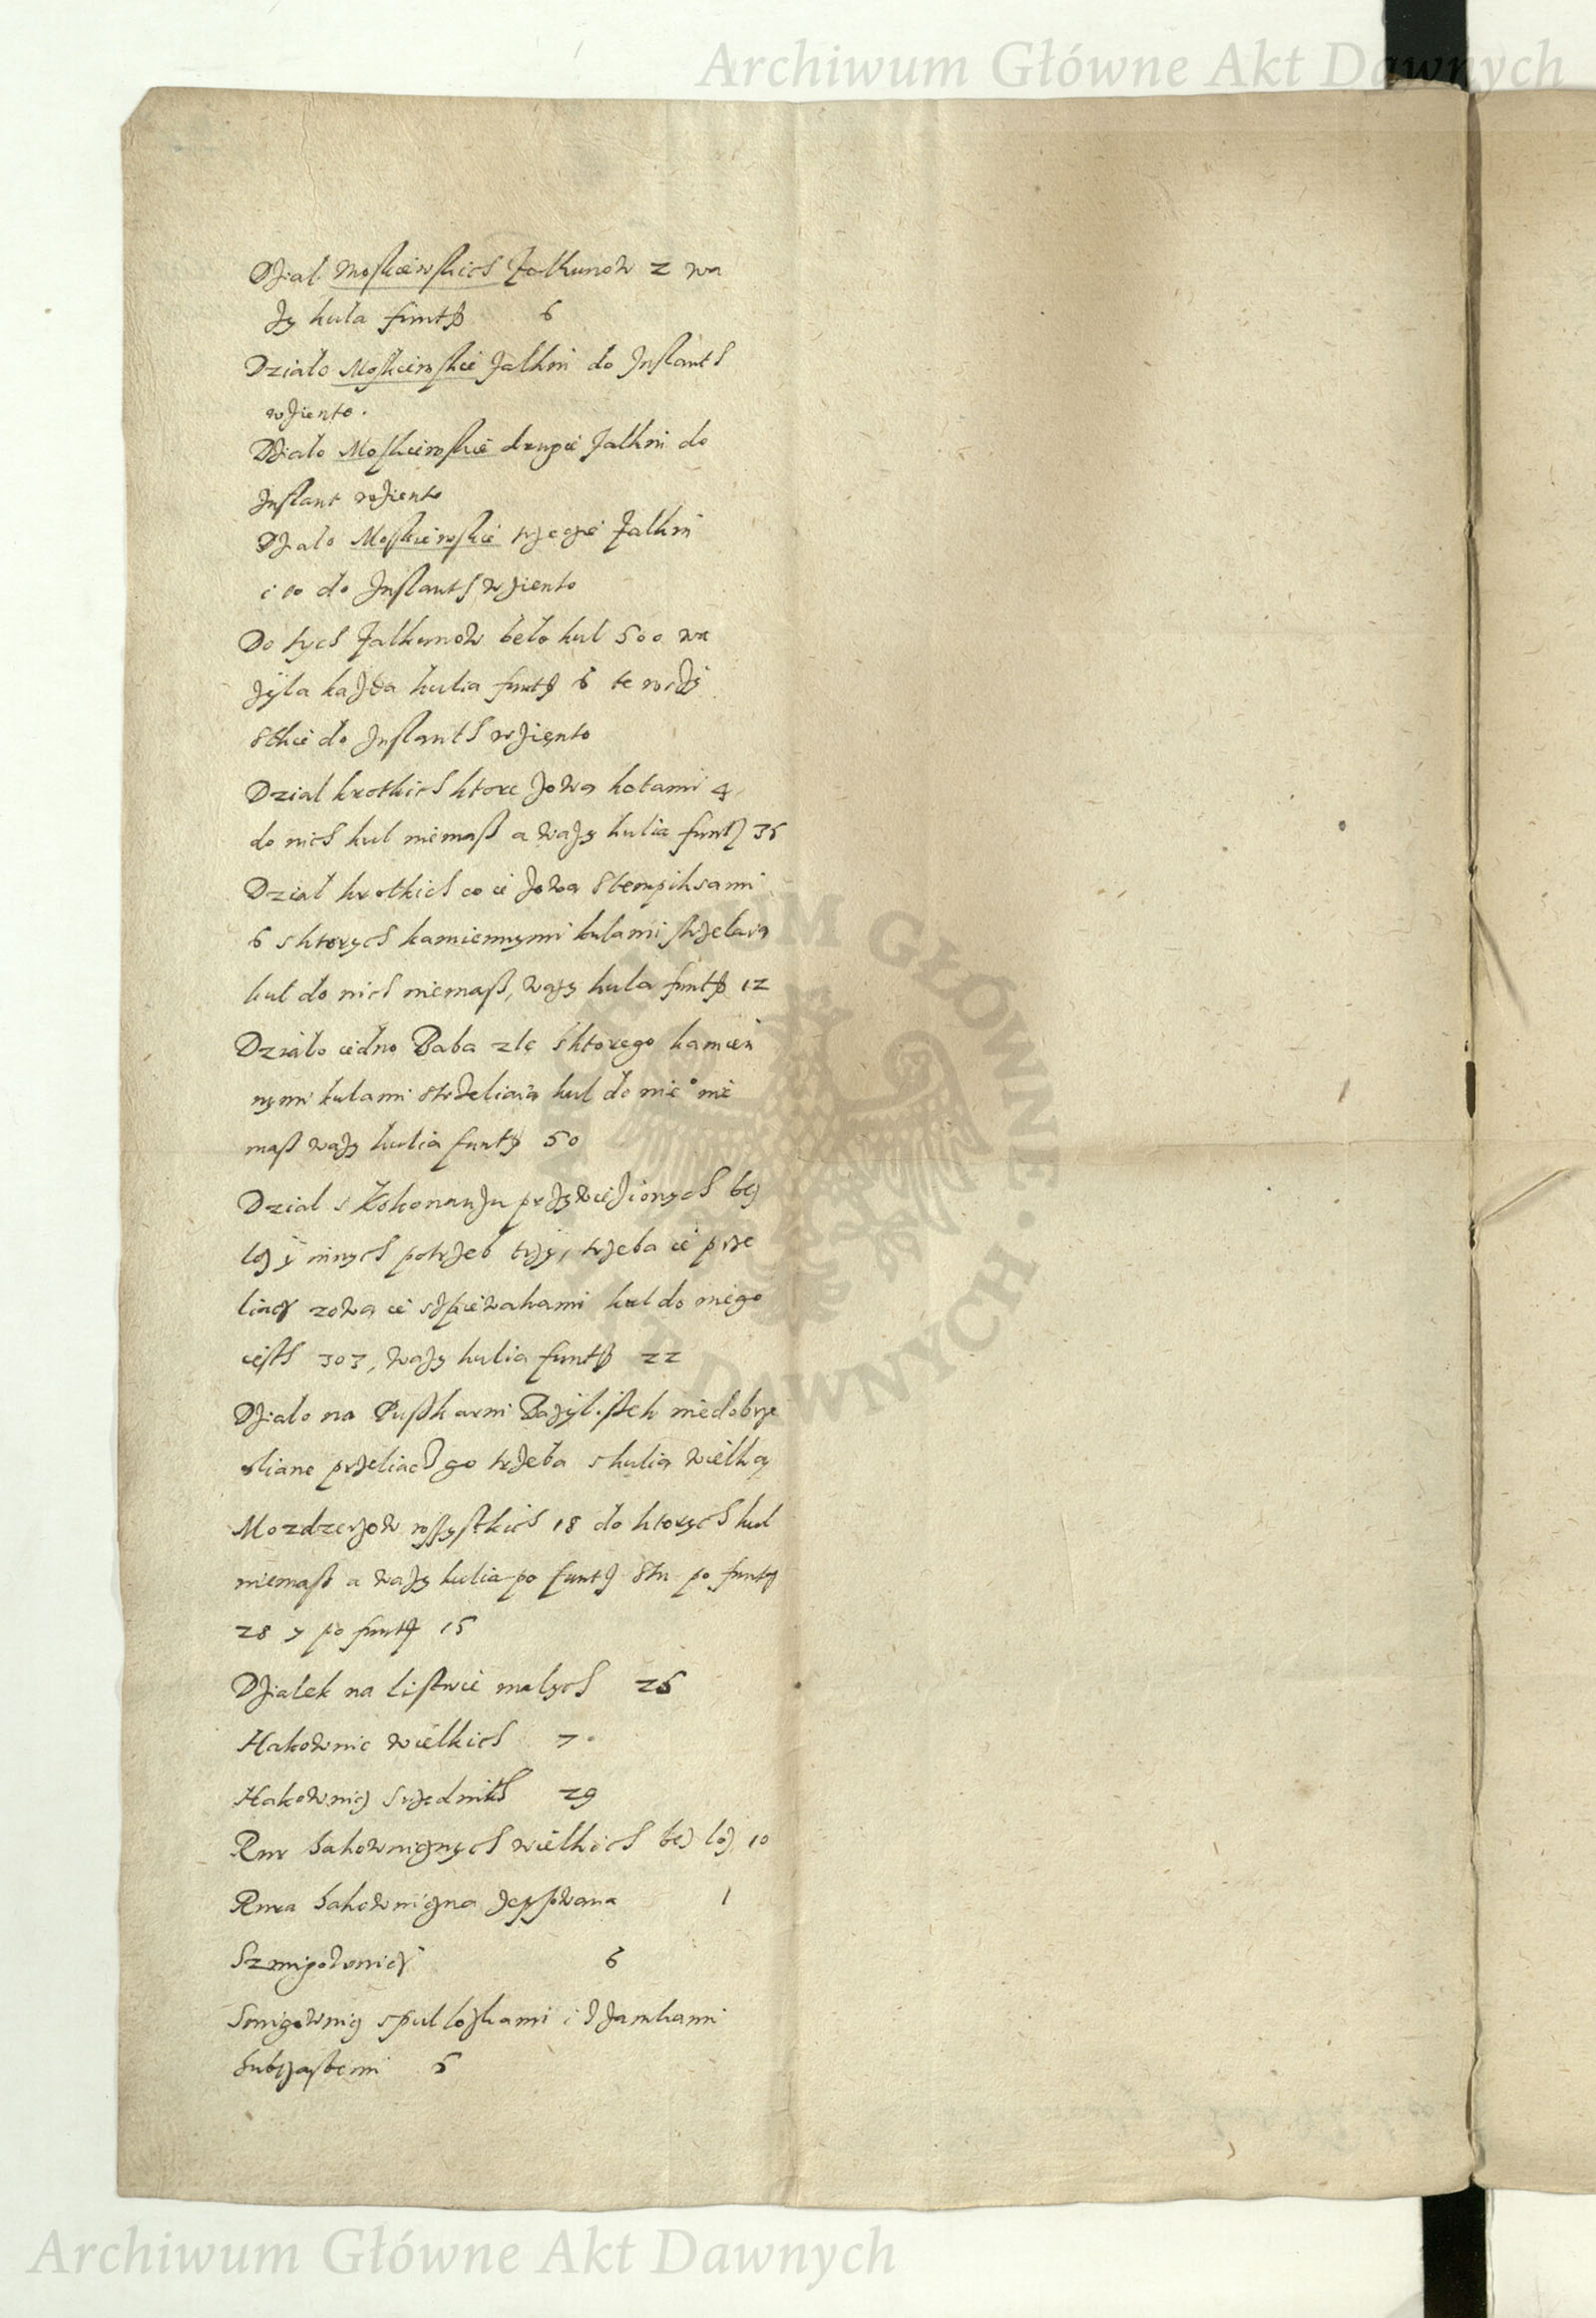 Archiwum Główne Akt Dawnych
Dzial Moskiewskich Falkunow 2 wa
zy kula funtß 6
Działo Moskiewskie Falkni do Inflant
wziento.
Działo Moskiewskie drugie Falkni do
Inflant wziento
Dzialo Moskiewskie trzecie Falkni
i to do Inflant wziento
Do tych Falkunow beło kul 500 wa
zyla kazda kulia funtÿ 6 te wszÿ
stkie do Inflant wzięnto
Dzial krotkich ktore zowa kotami 4
do nich kul niemaß a wazy kulia funtÿ 36
Dział krotkich co ie zowa Stempiksami
6 sktorych kamiennymi kulami strzelaią
kul do nich niemaß, wazy kula funtß 12
Działo iedno Baba zlę sktorego kamien
nymi kulami strzeliaią kul do nie° nie
maß wazy kulia funtÿ 50
Dzial s Kokonauzu przywiezionych bez
loz ÿ innych potrzeb trzy, trzeba ie prze
liacz zowa ie szpiewakami kul do niego
iest 303, wazy kulia funtß 22
Działo na Pußkarni Bazyl.ißek niedobrze
sliane przeliac go trzeba s kulią wielką
Mozdzerzow wszystkich 18 do ktorych kul
niemaß a wazy kulia po funtÿ stu po funtÿ
28 y po funtÿ 15
Dzialek na listwie malych 26
Hakownic wielkich 7
Hakownicz srzednich 29
Rur hakownicznych wielkich bez loz 10
Rura hakowniczna zepsowana 1
Szmigownicz 6
Smigownicz spul lozkami i zamkami
hubczastemi 6
ARCHIWUM GŁÓWNE AKT DAWNYCH
Archiwum Główne Akt Dawnych